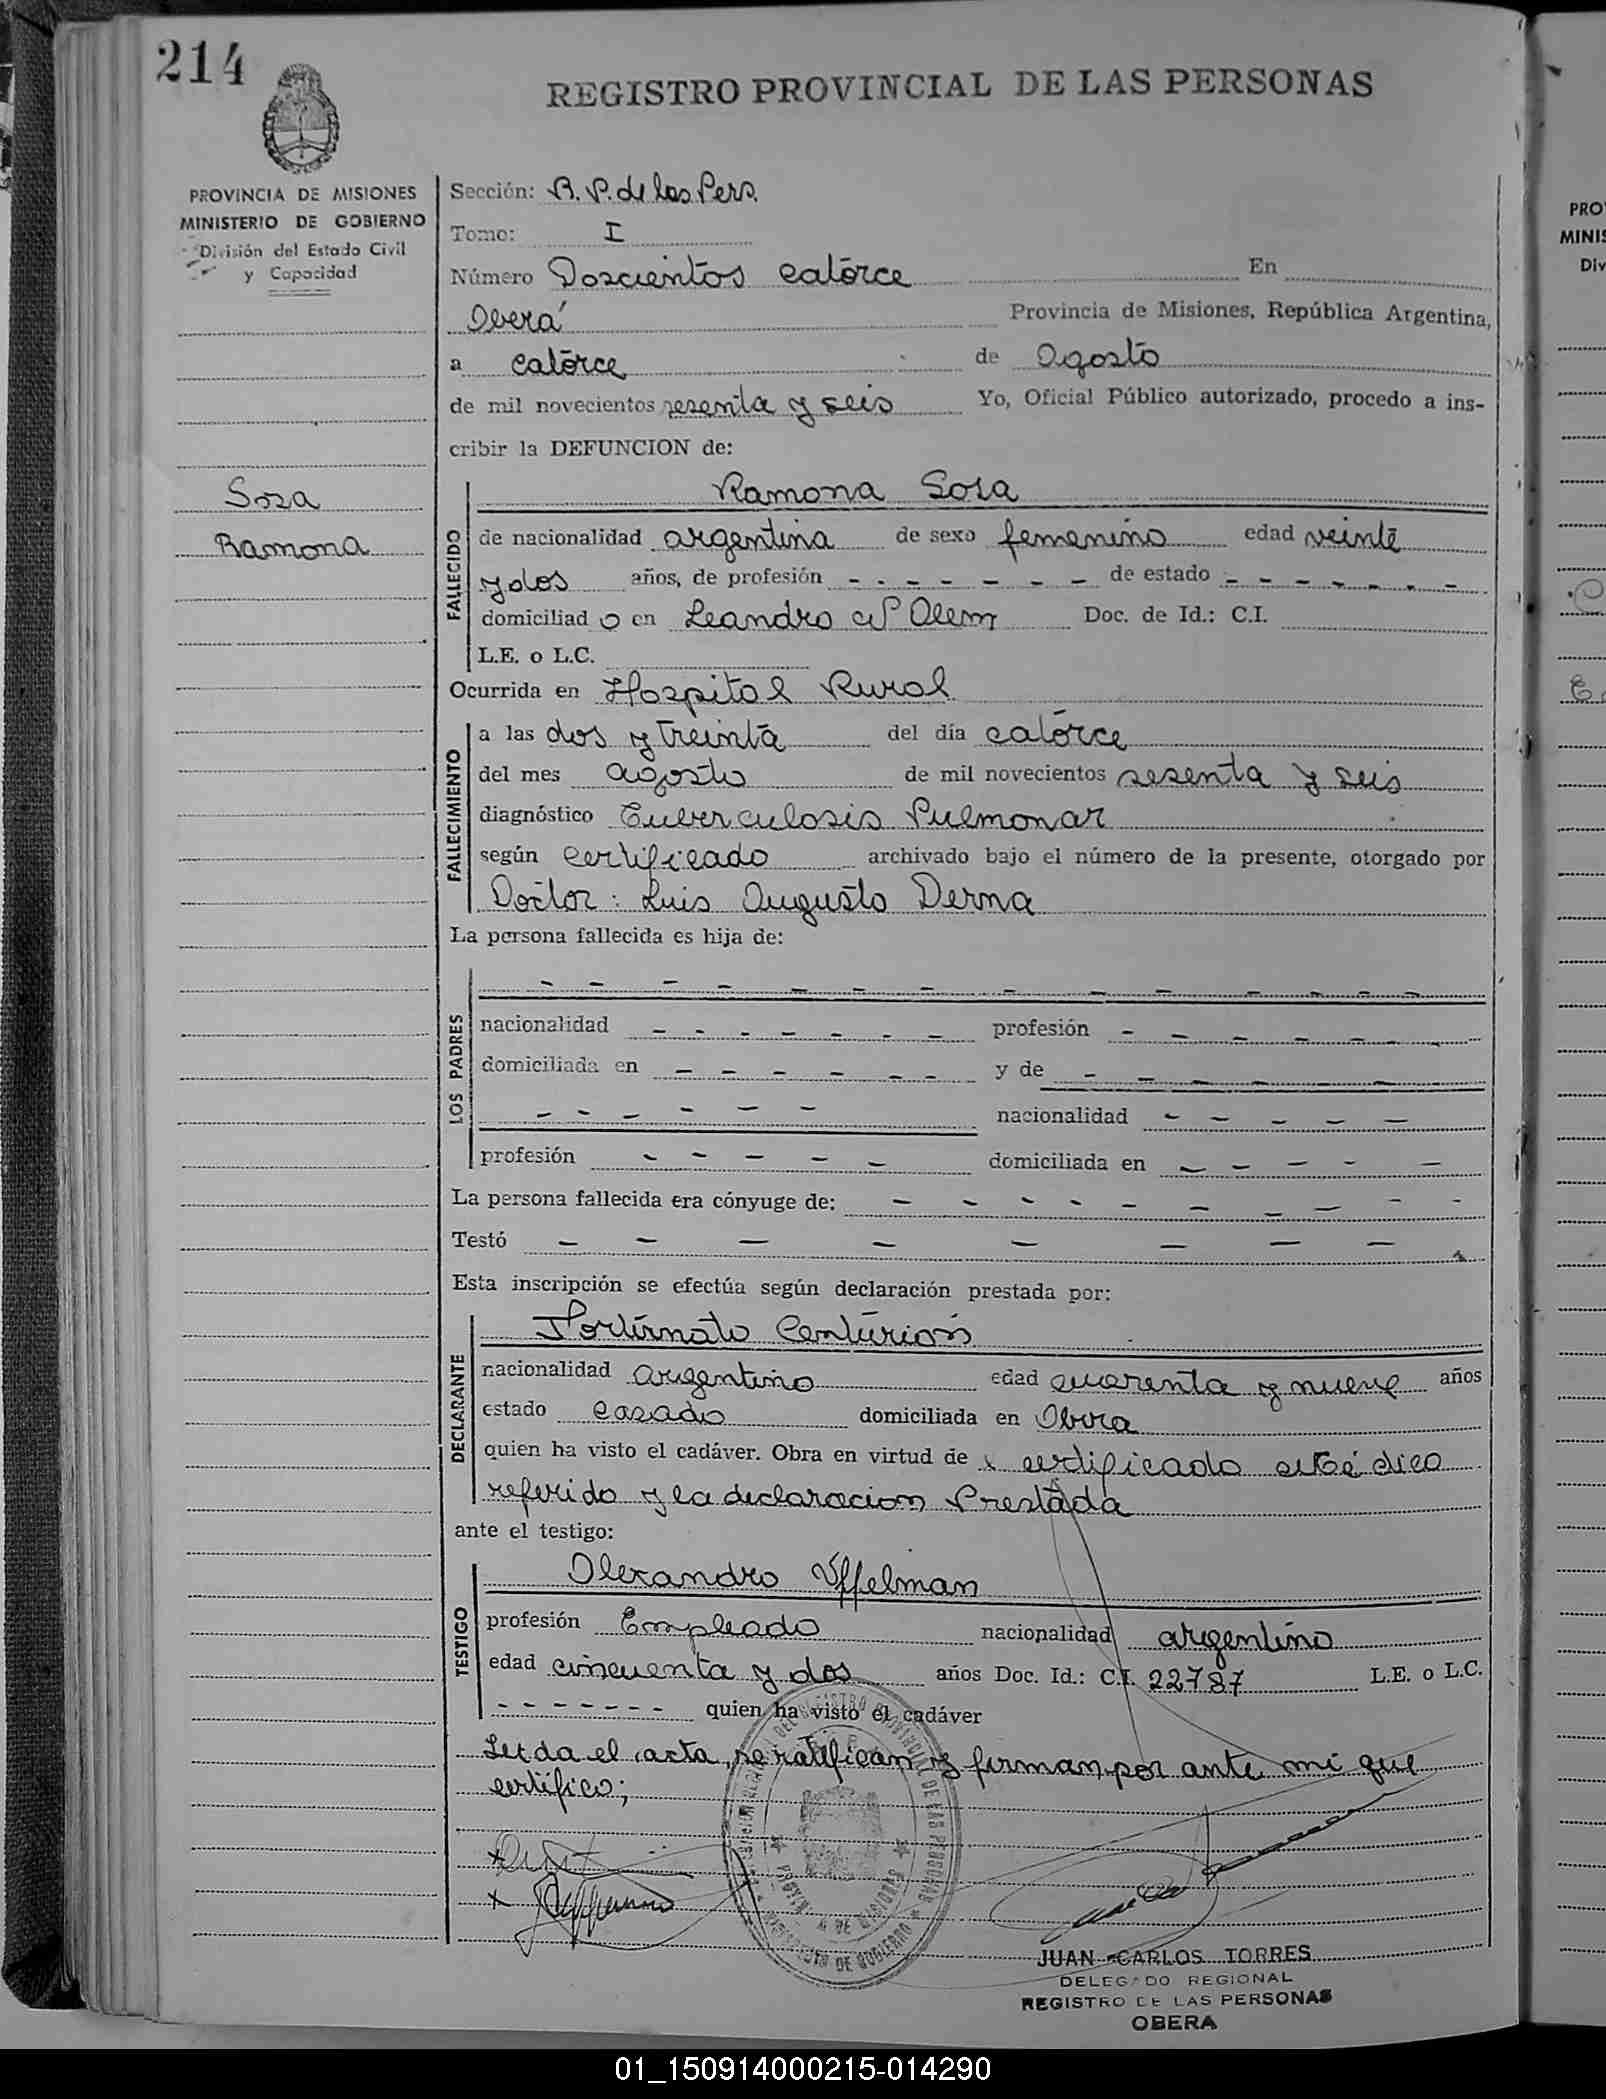 214
REGISTRO PROVINCIAL DE LAS PERSONAS
PROVINCIA DE MISIONES
MINISTERIO DE GOBIERNO
División del Estado Civil
y Capacidad
Sosa
Ramona
Sección: R. P. de las Pers.
Tomo: I
Número Doscientos catorce En
Oberá Provincia de Misiones, República Argentina,
a catorce de Agosto
de mil novecientos sesenta y seis Yo, Oficial Público autorizado, procedo a ins-
cribir la DEFUNCION de:
FALLECIDO
Ramona Sosa
de nacionalidad argentina de sexo femenino edad veinte
y dos años, de profesión - - - - - - - de estado - - - - - - -
domiciliad o en Leandro N Alem Doc. de Id.: C.I.
L.E. o L.C.
Ocurrida en Hospital Rural
FALLECIMIENTO
a las dos y treinta del día catorce
del mes agosto de mil novecientos sesenta y seis
diagnóstico Tuberculosis Pulmonar
según certificado archivado bajo el número de la presente, otorgado por
Doctor: Luis Augusto Derna
La persona fallecida es hija de:
LOS PADRES
- - - - - - - - - - - - - -
nacionalidad - - - - - - - profesión - - - - - -
domiciliada en - - - - - - y de - - - - - -
- - - - - - nacionalidad - - - - -
profesión - - - - - domiciliada en - - - - -
La persona fallecida era cónyuge de: - - - - - - - - - -
Testó - - - - - - - -
Esta inscripción se efectúa según declaración prestada por:
DECLARANTE
Fortunato Centurión
nacionalidad argentino edad cuarenta y nueve años
estado casado domiciliada en Obera
quien ha visto el cadáver. Obra en virtud de certificado médico
referido y la declaracion Prestada
ante el testigo:
TESTIGO
Alexandro Uffelman
profesión Empleado nacionalidad argentino
edad cincuenta y dos años Doc. Id.: C.I. 22787 L.E. o L.C.
- - - - - - - quien ha visto el cadáver
Leida el acta, se ratifican y firman por ante mi que
certifico;
REGISTRO PROVINCIAL DE LAS PERSONAS
PROVINCIA DE MISIONES
MINISTERIO DE GOBIERNO
JUAN CARLOS TORRES
DELEGADO REGIONAL
REGISTRO DE LAS PERSONAS
OBERA
PRO
MINIS
Div
01_150914000215-014290